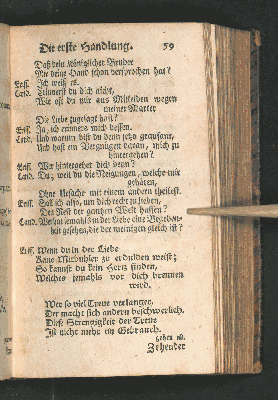 Die erste Handlung. 59
Daß dein Königlicher Bruder
Mir deine Hand schon versprochen hat?
Liss. Ich weiß es.
Cand. Erinnerst du dich nicht,
Wie oft du mir aus Mitleiden wegen
meiner Marter
Die Liebe zugesagt hast?
Liss. Ja, ich erinnere mich dessen.
Cand. Und warum bist du denn so grausam,
Und hast ein Vergnügen daran, mich zu
hintergehen?
Liss. Wer hintergehet dich denn?
Cand. Du; weil du die Neigungen, welche mir
gehören,
Ohne Ursache mit einem andern theilest.
Liss. Soll ich also, um dich recht zu lieben,
Den Rest der gantzen Welt hassen?
Cand. Wer hat jemahls in der Liebe eine
heit gesehen, die der meinigen gleich ist?
Liss. Wenn du in der Liebe
Keine Mitbuhler zu erdulden weist;
So kanst du kein Hertz finden,
Welches jemahls vor dich brennen
wird.
Wer so viel Treue verlanget,
Der macht sich andern beschwerlich.
Diese Strengigkeit der Treue
Ist nicht mehr im Gebrauch.
gehen ab.
Zehender